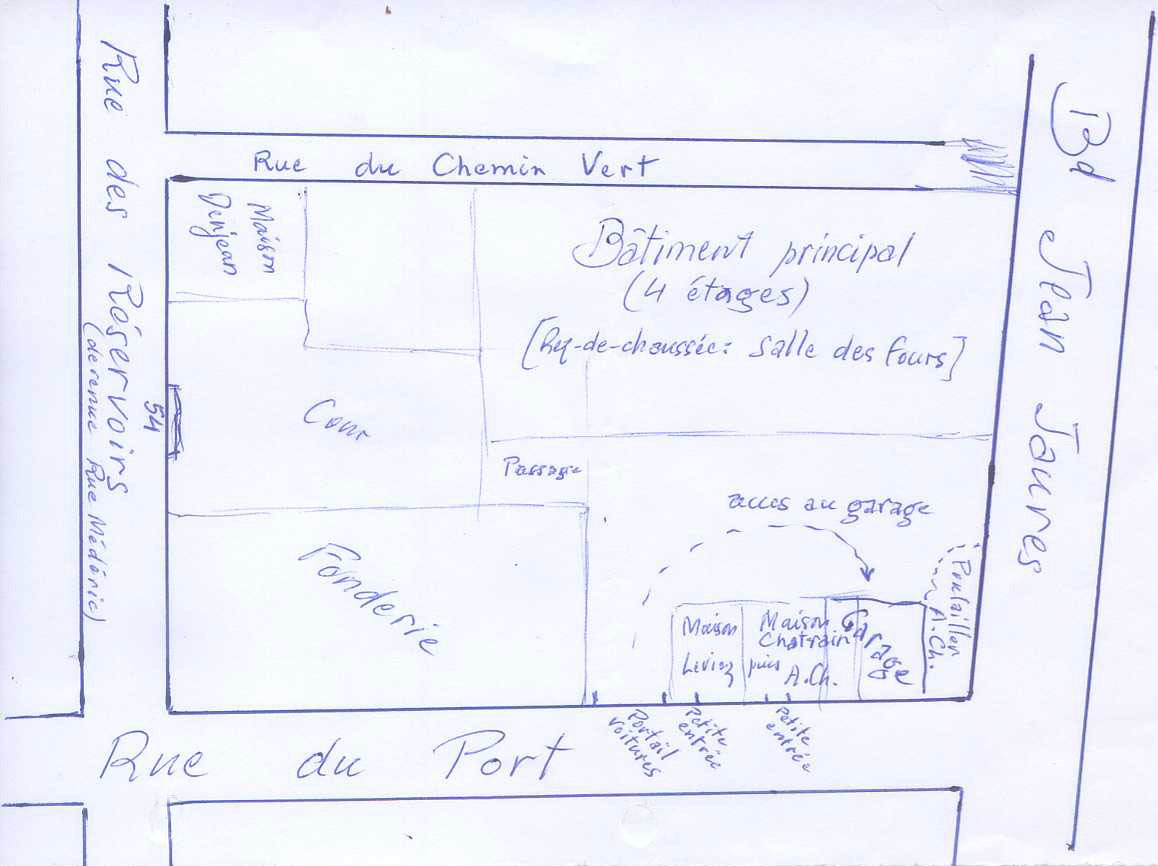 Rue des Réservoirs
(devenue Rue Médéric)
54
Rue du Chemin Vert
Bd Jean Jaures
Maison
Denjean
Bâtiment principal
(4 étages)
[Rez-de-chaussée: Salle des fours]
Cour
Passage
accès au garage
Fonderie
Maison
Maison
Chatrain
puis
A.Ch.
Garage
Poulailler
A.Ch.
Portail
voitures
Petite
entrée
Petite
entrée
Rue du Port